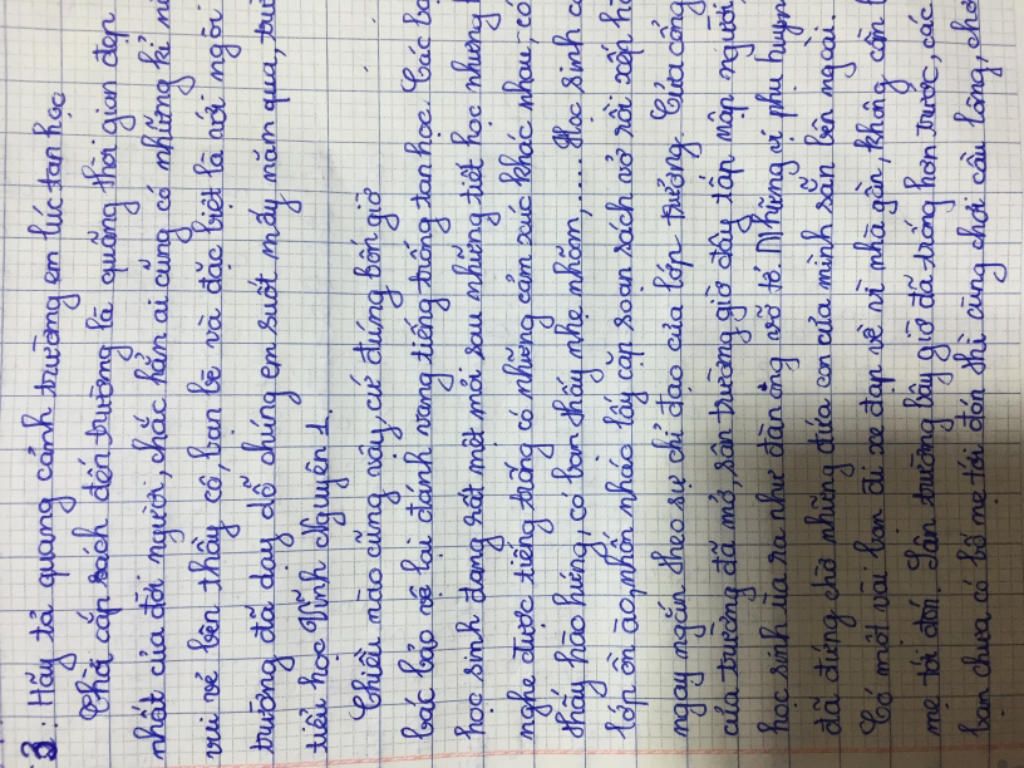 3: Hãy tả quang cảnh trường em lúc tan học
Thời cắp sách đến trường là quãng thời gian đẹp
nhất của đời người, chắc hẳn ai cũng có những kỉ
vui vẻ bên thầy cô, bạn bè và đặc biệt là với ngôi
trường đã dạy dỗ chúng em suốt mấy năm qua,
tiểu học Vĩnh Nguyên 1.
Chiều nào cũng vậy, cứ đúng bốn giờ
bác bảo vệ lại đánh vang tiếng trống tan học. Các
học sinh đang rất mệt mỏi sau những tiết học nhưng
nghe được tiếng trống có những cảm xúc khác nhau; có
thấy hào hứng, có bạn thấy nhẹ nhõm,.... Học sinh
lớp ồn ào, nhốn nháo lấy cặp soạn sách vở rồi xếp
ngay ngắn theo sự chỉ đạo của lớp trưởng. Cửa cổng
của trường đã mở, sân trường giờ đây tấp nập người,
học sinh ùa ra như đàn ong vỡ tổ. Những vị phụ huynh
đã đứng chờ những đứa con của mình sẵn bên ngoài.
Có một vài bạn đi xe đạp về vì nhà gần, không cần
mẹ tới đón. Sân trường bây giờ đã trống hơn trước, các
bạn chưa có bố mẹ tới đón thì cùng chơi cầu lông,